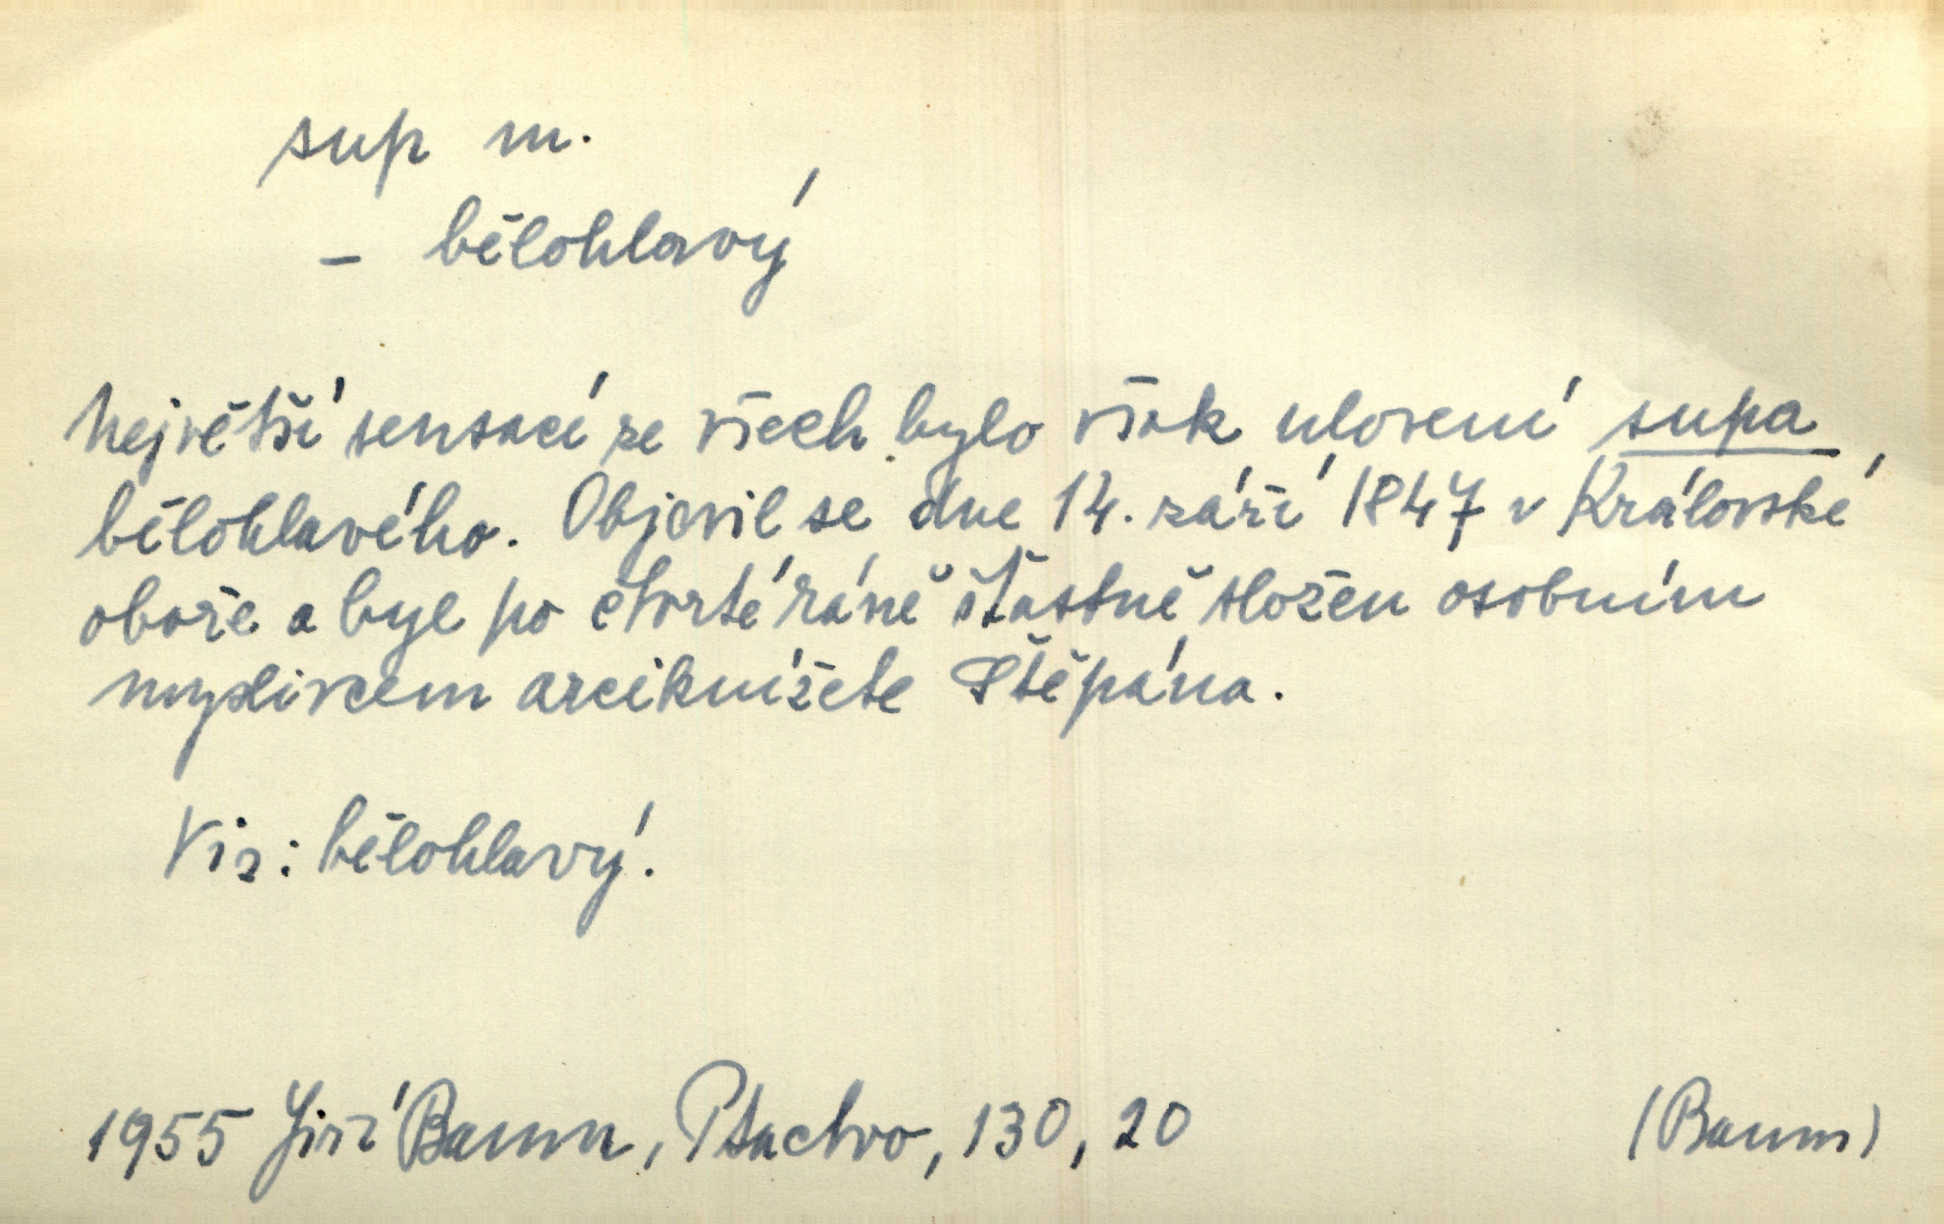 sup m.
– bělohlavý
Největší sensací ze všech bylo však ulovení supa
bělohlavého. Objevil se dne 14. září 1847 v Královské
oboře a byl po čtvrté ráně šťastně složen osobním
myslivcem arciknížete Štěpána.
Viz: bělohlavý.
1955 Jiří Baum, Ptactvo, 130, 20 (Baum)